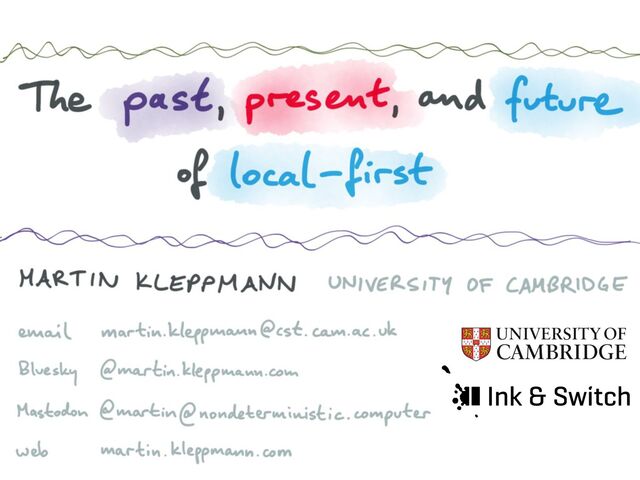 The past, present, and future
of local-first
MARTIN KLEPPMANN UNIVERSITY OF CAMBRIDGE
email martin.kleppmann@cst.cam.ac.uk
Bluesky @martin.kleppmann.com
Mastodon @martin@nondeterministic.computer
web martin.kleppmann.com
UNIVERSITY OF
CAMBRIDGE
Ink & Switch